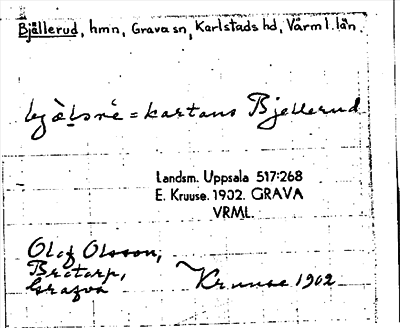 Bjällerud, hmn, Grava sn, Karlstads hd, Värml. län.
= kartans Bjellerud
Landsm. Uppsala 517:268
E. Kruuse. 1902. GRAVA
VRML.
Olof Olsson,
Brätorp,
Grafva
Kruuse 1902